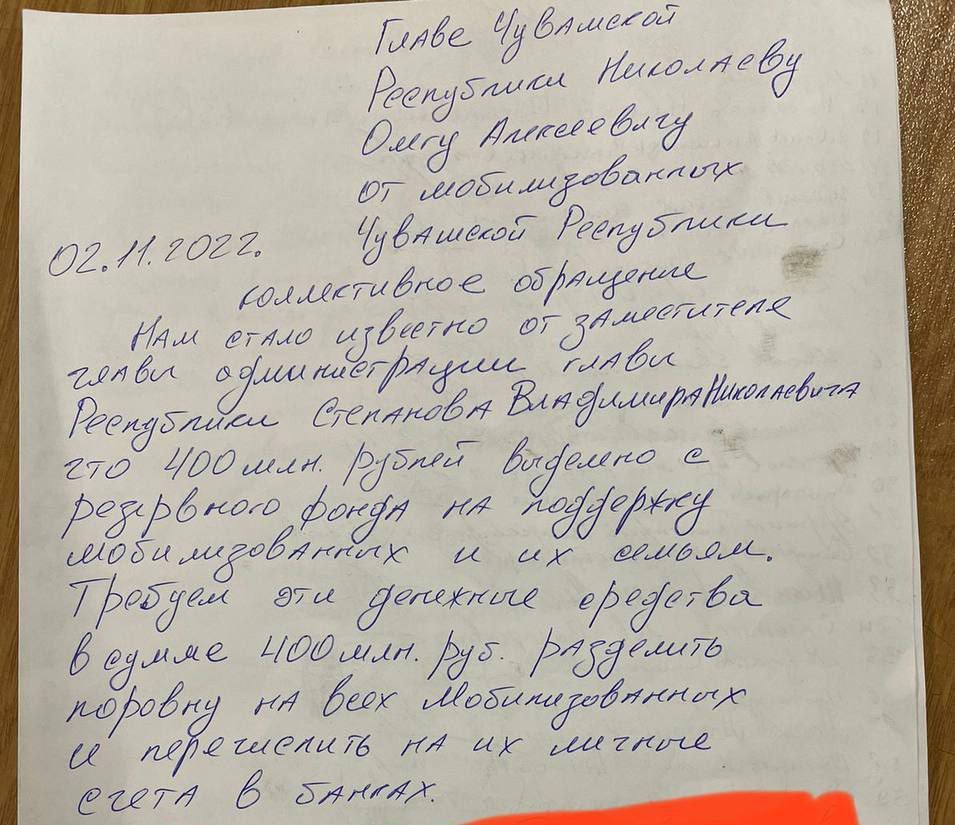 Главе Чувашской
Республики Николаеву
Олегу Алексеевичу
от мобилизованных
Чувашской Республики
02.11.2022г.
коллективное обращение
Нам стало известно от заместителя
главы администрации главы
Республики Степанова Владимира Николаевича
что 400 млн. рублей выделено с
резервного фонда на поддержку
мобилизованных и их семьям.
Требуем эти денежные средства
в сумме 400 млн. руб. разделить
поровну на всех мобилизованных
и перечислить на их личные
счета в банках.